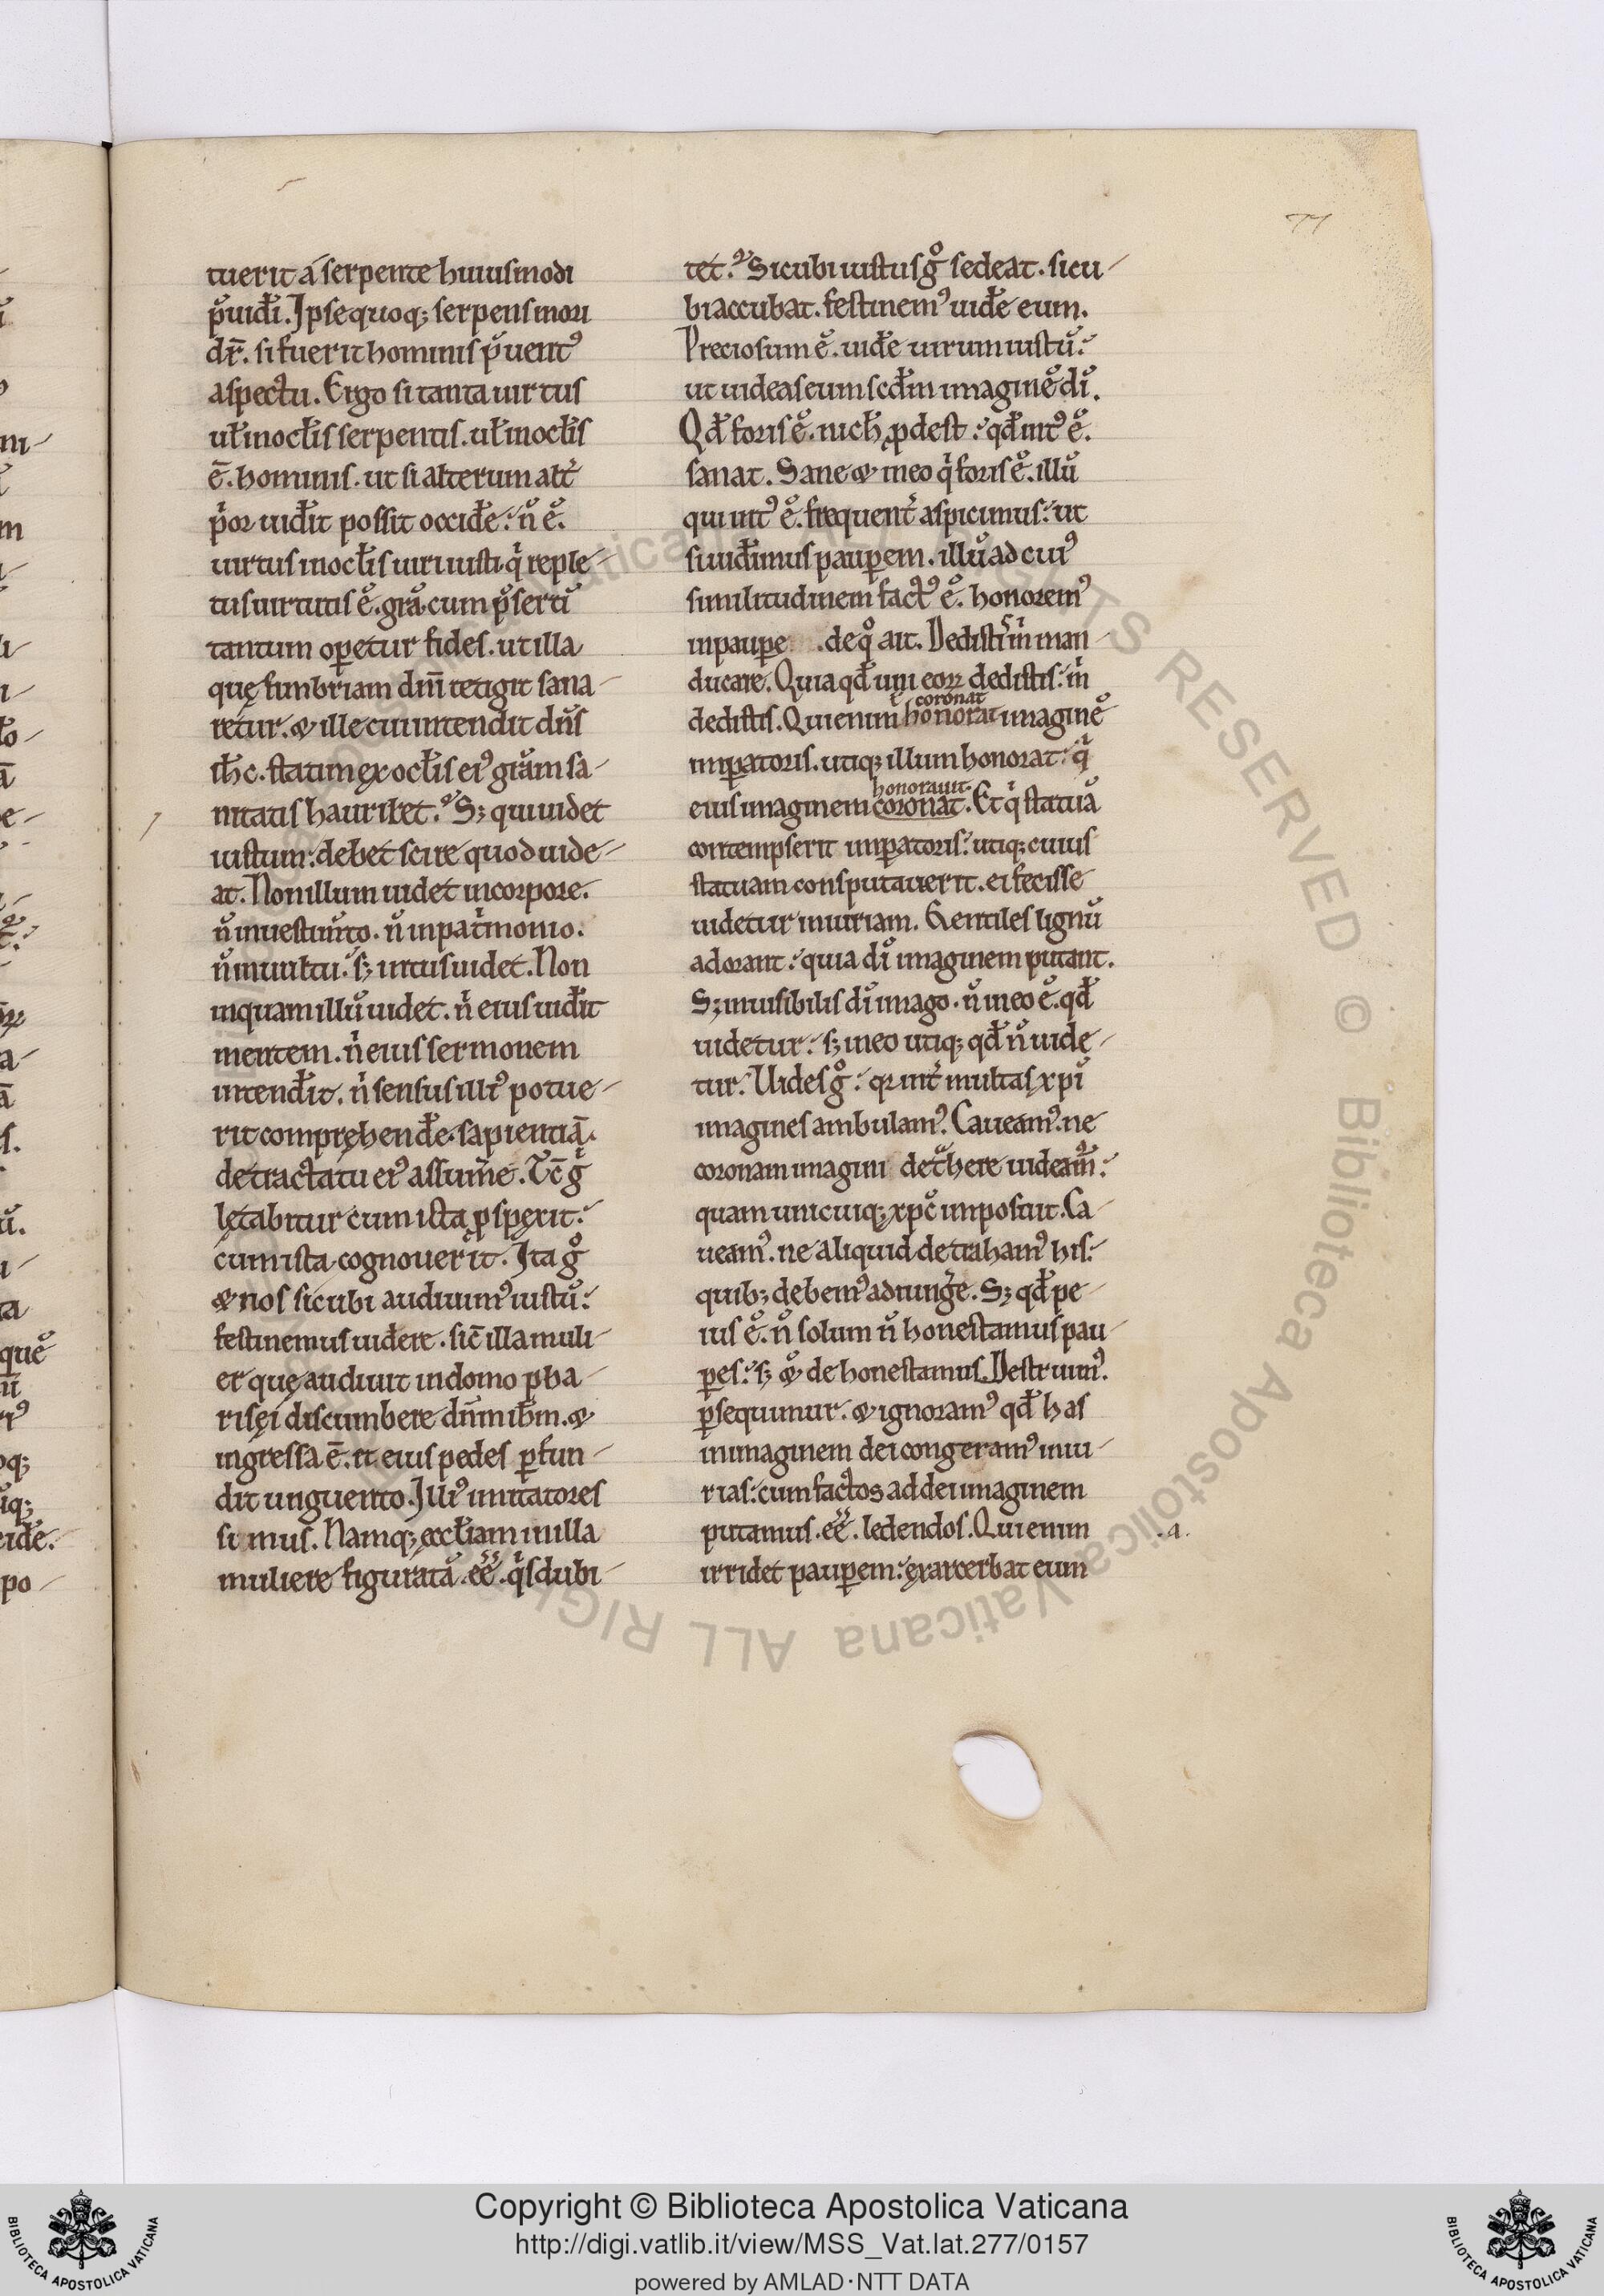 77
tuerit a serpente huiusmodi
p̄uidẽri. Ipse quoq; serpens mori
dr̄. si fuerit hominis p̄uentꝰ
aspectu. Ergo si tanta uirtus
ut̃ inoct̃is serpentis. ut̃ inoct̃is
ē. hominis. ut si alterum alt̃
p̃or uid̃it possit occid̃e. n̄ ē.
uirtus inoct̃is uiri iusti. q̃ reple-
tus uirtutis ē. gr̃a. cum p̄sertī
tantum oꝑetur fides. ut illa
quę fimbriam dn̄i tetigit sana-
retur. & ille cui intendit dn̄s
ih̄c. statim ex oct̃is eiꝰ grãm sa-
nitatis hauriret. S; qui uidet
iustum: debet scire quod uide-
at. Non illum uidet incorpore.
n̄ inuestim̃to. n̄ inpat̃monio.
n̄ inuultu. s; intus uidet. Non
inquam illū uidet. n̄ eius uid̃it
mentem. n̄ eius sermonem
intend̃it. n̄ sensus illiꝰ potue-
rit comprehend̃e. sapientiā.
detractatu eiꝰ assum̃e. Tc̄ g̃
lętabitur cum ista ꝓspexit.
cum ista cognouerit. Ita g̊
& nos sicubi audiuimꝰ iustū.
festinemus uidere. sic̄ illa muli-
er quę audiuit indomo pha-
risęi discumbere dn̄m ih̄m. &
ingressa ē. et eius pedes ꝑfun-
dit unguento. Illiꝰ imitatores
simus. Namq; ecct̃iam inilla
muliere figuratā. eē. q̃s dubi-
tet. Sicubi iustus g̊ sedeat. sicu-
bi accubat. festinemꝰ uid̃e eum.
Preciosum ē. uid̃e uirum iustū.
ut uideas eum scd̃m imaginē dī.
Qd̃ foris ē. nich̃ ꝓdest: qd̃ intꝰ ē.
sanat. Sane & ineo q̃ foris ē. illū
qui intꝰ ē. frequent̃ aspicimus: ut
si uid̃imus pauꝑem. illū ad cuiꝰ
similitudinem factꝰ ē. honoremꝰ
inpauꝑe. de q̊ ait. Dedistis m̃ man-
ducare. Quia qd̃ uni eoꝝ dedistis: m̃
coronat
dedistis. Qui enim honorat imaginē
imꝑatoris. utiq; illum honorat: q̃
honorauit
eius imaginem coronat. Et q̃ statuā
contempserit imꝑatoris: utiq; cuius
statuam consputauerit. ei fecisse
uidetur iniuriam. Gentiles lignū
adorant: quia dī imaginem putant.
S; inuisibilis dī imago. n̄ ineo ē. qd̃
uidetur: s; ineo utiq; qd̃ n̄ uide-
tur. Uides g̊: q̵ int̃ multas xp̄i
imagines ambulamꝰ. Caueamꝰ. ne
coronam imagini det̃here uideam̃:
quam unicuiq; xp̄c imposuit. Ca-
ueamꝰ. ne aliquid detrahamꝰ his:
quib; debemꝰ adiung̃e. S; qd̃ pe-
ius ē. n̄ solum n̄ honestamus pau-
ꝑes: s; & de honestamus. Destruimꝰ.
ꝑsequimur. & ignoramꝰ qd̃ has
inimaginem dei congeramꝰ iniu-
rias: cum factos ad dei imaginem
putamus. eē. ledendos. Qui enim
.a.
irridet pauꝑem: exarcerbat eum
Copyright © Biblioteca Apostolica Vaticana
http://digi.vatlib.it/view/MSS_Vat.lat.277/0157
powered by AMLAD·NTT DATA
BIBLIOTECA APOSTOLICA VATICANA
BIBLIOTECA APOSTOLICA VATICANA